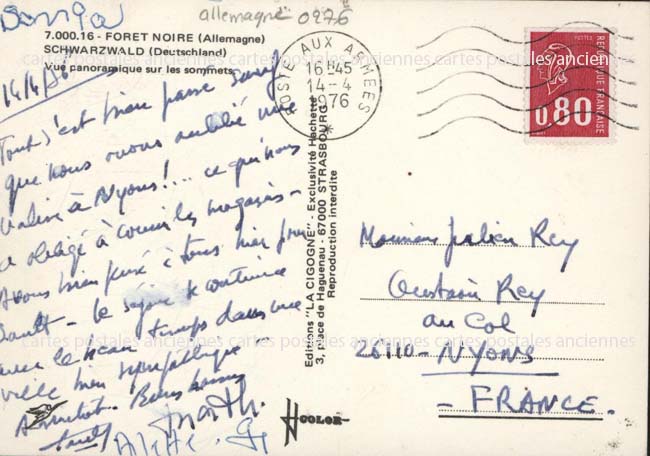 allemagne 0276
7.000.16 - FORET NOIRE (Allemagne)
SCHWARZWALD (Deutschland)
Vue panoramique sur les sommets
14/4/76
Tout s'est bien passé sauf
que nous avons oublié une
valise à Nyons!.... ce qui nous
a obligé à courir les magasins -
Avons bien pensé à tous hier pour
Sault - le séjour se continue
avec le beau temps dans une
ville bien sympathique -
A bientôt - Bons baisers
POSTE AUX ARMEES
16H45
14-4
1976
RÉPUBLIQUE FRANÇAISE
0,80
Editions "LA CIGOGNE" - Exclusivité Hachette
3, place de Haguenau - 67000 STRASBOURG
Reproduction interdite
Monsieur Julien Rey
Quartier Rey
au Col
26110 - NYONS
- FRANCE.
COLOR
cartes postales anciennes cartes postales anciennes cartes postales anciennes